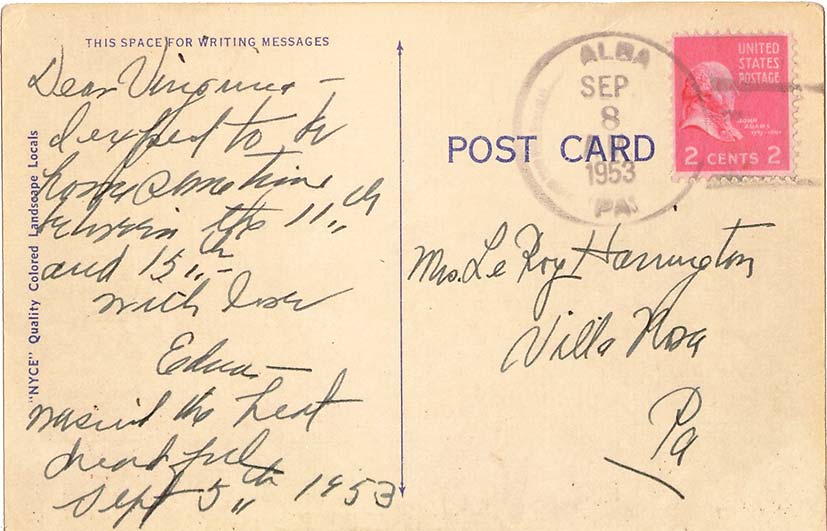 THIS SPACE FOR WRITING MESSAGES
Dear Virginia –
I expect to be
home sometime
between the 11th
and 15th –
with love
Edna –
wasn't the heat
dreadful
Sept 5th 1953
"NYCE" Quality Colored Landscape Locals
POST CARD
ALBA
SEP
8
1953
PA
UNITED
STATES
POSTAGE
JOHN
ADAMS
2 CENTS 2
Mrs. Le Roy Harrington
Villa Nova
Pa